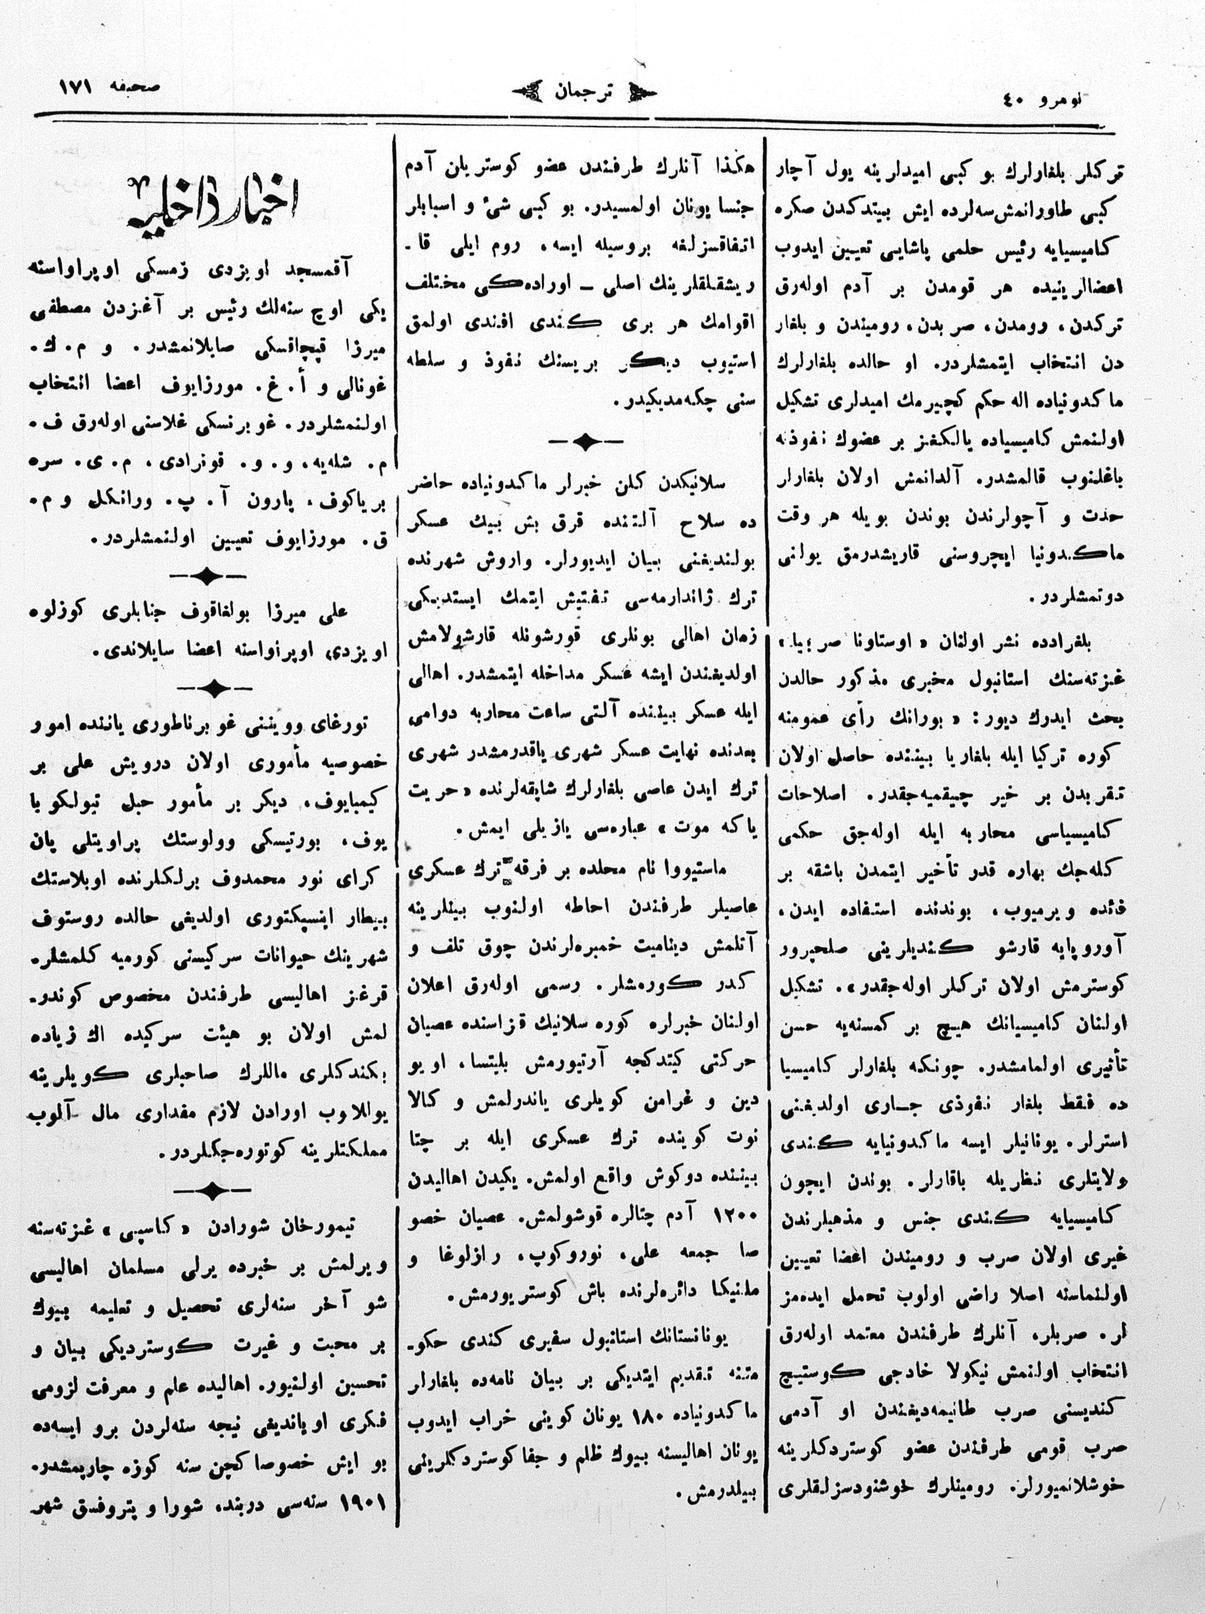 نومرو ٤٠
ترجمان
صحیفه ١٧١
تركلر بلغارلرك بو كبی امیدلرینه یول آچار
كبی طاورانمش‌سه‌لرده ایش بیتدكدن صكره
كامیسیایه رئیس حلمی پاشایی تعیین ایدوب
اعضالرینیده هر قومدن بر آدم اوله‌رق
تركدن، رومدن، صربدن، رومیندن و بلغار
دن انتخاب ایتمشلردر. او حالده بلغارلرك
ماكدونیاده اله حكم كچیرمك امیدلری تشكیل
اولنمش كامیسیاده یالكغز بر عضوك نفوذنه
باغلنوب قالمشدر. آلدانمش اولان بلغارلر
حدت و آچولرندن بوندن بویله هر وقت
ماكدونیا ایچروسنی قاریشدرمق یولنی
دوتمشلردر.
بلغرادده نشر اولنان «اوستاونا صربیا»
غزته‌سنك استانبول مخبری مذكور حالدن
بحث ایدرك دیور: «بورانك رأی عمومنه
كوره تركیا ایله بلغاریا بیننده حاصل اولان
تقربدن بر خیر چیقمیه‌جقدر. اصلاحات
كامیسیاسی محاربه ایله اوله‌جق حكمی
كله‌جك بهاره قدر تأخیر ایتمدن باشقه بر
فائده ویرمیوب، بوندنده استفاده ایدن،
آوروپایه قارشو كندیلرینی صلحپرور
كوسترمش اولان تركلر اوله‌جقدر». تشكیل
اولنان كامیسیانك هیچ بر كمسنه‌یه حسن
تأثیری اولمامشدر. چونكه بلغارلر كامیسیا
ده فقط بلغار نفوذی جاری اولدیغنی
استرلر. یونانیلر ایسه ماكدونیایه كندی
ولایتلری نظریله باقارلر. بوندن ایچون
كامیسیایه كندی جنس و مذهبلرندن
غیری اولان صرب و رومیندن اعضا تعیین
اولنماسنه اصلا راضی اولوب تحمل ایده‌مز
لر. صربلر، آنلرك طرفندن معتمد اوله‌رق
انتخاب اولنمش نیكولا خادجی كوستیچ
كندیسنی صرب طانیمه‌دیغندن او آدمی
صرب قومی طرفندن عضو كوستردكلرینه
خوشلانمیورلر. رومینلرك خوشنودسزلقلری
هكذا آنلرك طرفندن عضو كوستریلن آدم
جنسا یونان اولمسیدر. بو كبی شئ و اسبابلر
اتفاقسزلغه بروسیله ایسه، روم ایلی قا‌ـ
ریشقلقلرینك اصلی ـ اوراده‌كی مختلف
اقوامك هر بری كندی افندی اولمق
استیوب دیكر بریسنك نفوذ و سلطه
سنی چكه‌مدیكیدو.
سلانیكدن كلن خبرلر ماكدونیاده حاضر
ده سلاح آلتنده قرق بش بیك عسكر
بولندیغنی بیان ایدیورلر. واروش شهرنده
ترك ژاندارمه‌سی تفتیش ایتمك ایستدیكی
زمان اهالی بونلری قورشونله قارشولامش
اولدیغندن ایشه عسكر مداخله ایتمشدر. اهالی
ایله عسكر بیننده آلتی ساعت محاربه دوامی
بعدنده نهایت عسكر شهری یاقدرمشدر شهری
ترك ایدن عاصی بلغارلرك شاپقه‌لرنده «حریت
یاكه موت» عباره‌سی یازیلی ایمش.
ماستیووا نام محلده بر فرقه ترك عسكری
عاصیلر طرفندن احاطه اولنوب بینلرینه
آتلمش دینامیت خمبره‌لرندن چوق تلف و
كدر كورمشلر. رسمی اوله‌رق اعلان
اولنان خبرلره كوره سلانیك قزاسنده عصیان
حركتی كیتدكجه آرتیورمش بلیتسا، اویو
دین و غرامن كویلری یاندرلمش و كالا
نوت كوینده ترك عسكری ایله بر چتا
بیننده دوكوش واقع اولمش. یكیدن اهالیدن
١٢٠٠ آدم چتالره قوشولمش. عصیان خصو
صا جمعه علی، نوروكوپ، رازلوغا و
ملنیكا دائره‌لرنده باش كوستریورمش.
یونانستانك استانبول سفیری كندی حكو‌ـ
متنه تقدیم ایتدیكی بر بیان نامه‌ده بلغارلر
ماكدونیاده ١٨٠ یونان كوینی خراب ایدوب
یونان اهالیسنه بیوك ظلم و جفا كوستردكلرینی
بیلدرمش.
اخبار داخلیه
آقمسجد اویزدی زمسكی اوپراواسنه
یكی اوچ سنه‌لك رئیس بر آغزدن مصطفی
میرزا قپچاقسكی صایلانمشدر. و م. ك.
غونالی و أ. غ. مورزایوف اعضا انتخاب
اولنمشلردر. غوبرنسكی غلاسنی اوله‌رق ف.
م. شله‌یه، و. و. قونرادی، م. ی. سره
بریاكوف، پارون آ. پ. ورانكل و م.
ق. مورزایوف تعیین اولنمشلردر.
علی میرزا بولغاقوف جنابلری كوزلوه
اویزدی اوپراواسنه اعضا سایلاندی.
تورغای ووینننی غوبرناطوری یاننده امور
خصوصیه مأموری اولان درویش علی بر
كیمبایوف، دیكر بر مأمور حبل تیولكو با
یوف، بورتیسكی وولوستك پراویتلی پان
كرای نور محمدوف برلكلرنده اوبلاستك
بیطار اینسپكتوری اولدیغی حالده روستوف
شهرینك حیوانات سركیسنی كورمیه كلمشلر.
قرغز اهالیسی طرفندن مخصوص كوندر‌ـ
لمش اولان بو هیئت سركیده اك زیاده
بكندكلری ماللرك صاحبلری كویلرینه
یوللاوب اورادن لازم مقداری مال آلوب
مملكتلرینه كوتوره‌جكلردر.
تیمورخان شورادن «كاسپی» غزته‌سنه
ویرلمش بر خبرده یرلی مسلمان اهالیسی
شو آخر سنه‌لری تحصیل و تعلیمه بیوك
بر محبت و غیرت كوستردیكی بیان و
تحسین اولنیور. اهالیده علم و معرفت لزومی
فكری اویاندیغی نیجه سنه‌لردن برو ایسه‌ده
بو ایش خصوصا كچن سنه كوزه چارپمشدر.
١٩٠١ سنه‌سی دربند، شورا و پتروفسق شهر